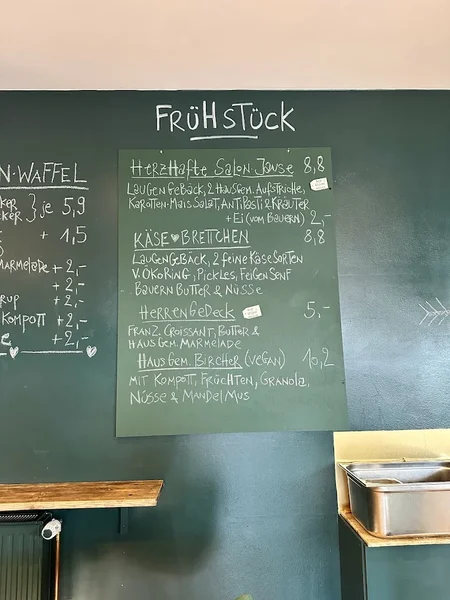 FRÜHSTÜCK
N-WAFFEL
je 5,9
+ 1,5
MARMELADE +2,-
+2,-
+2,-
KOMPOTT +2,-
+2,-
HERZHAFTE SALON JAUSE 8,8
LAUGENGEBÄCK, 2 HAUSGEM. AUFSTRICHE,
KAROTTEN-MAIS SALAT, ANTIPASTI & KRÄUTER
+ Ei (VOM BAUERN) 2,-
KÄSE♥BRETTCHEN 8,8
LAUGENGEBÄCK, 2 FEINE KÄSESORTEN
V. ÖKORING, PICKLES, FEIGENSENF
BAUERNBUTTER & NÜSSE
HERRENGEDECK 5,-
FRANZ. CROISSANT, BUTTER &
HAUSGEM. MARMELADE
HAUSGEM. BIRCHER (VEGAN) 10,2
MIT KOMPOTT, FRÜCHTEN, GRANOLA,
NÜSSE & MANDELMUS